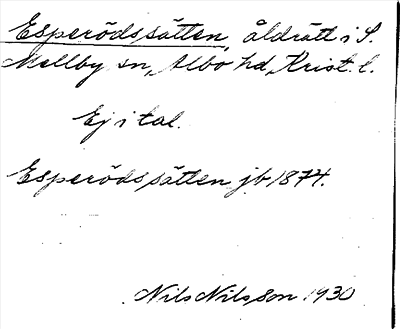 Esperödssätten, åldrätt i S.
Mellby sn, Albo hd, Krist. l.
Ej i tal.
Esperödssätten jb 1874.
Nils Nilsson 1930